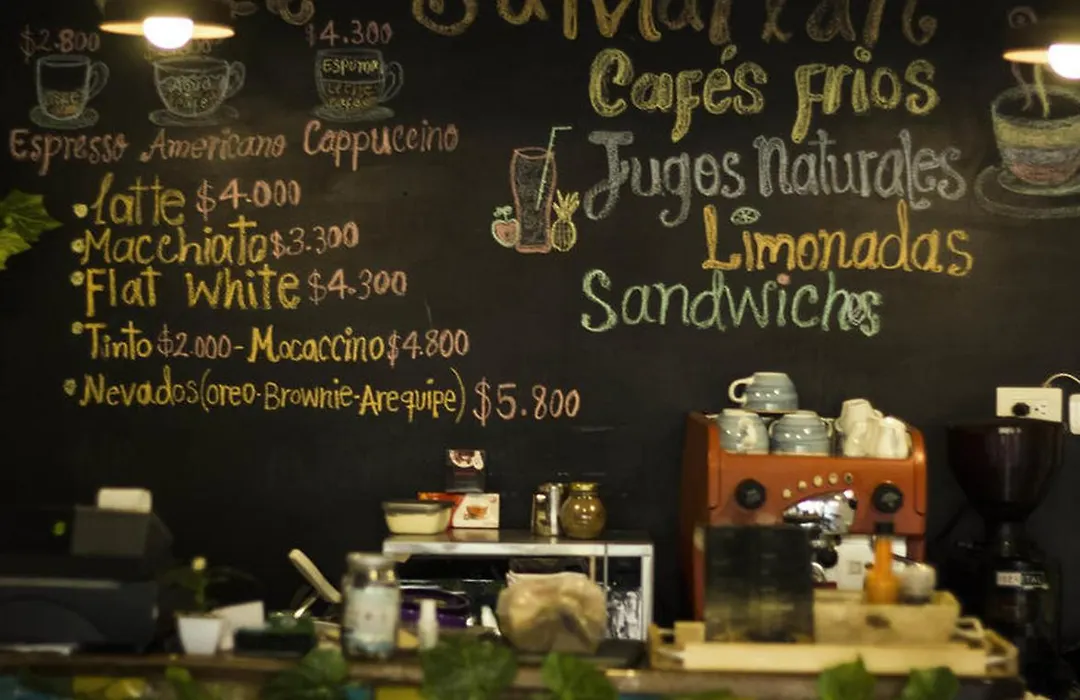 $2.800
$4.300
ESPUMA
LECHE
Espresso Americano Cappuccino
Latte $4.000
Macchiato $3.300
Flat White $4.300
Tinto $2.000 - Mocaccino $4.800
Nevados (oreo-Brownie-Arequipe) $5.800
Cafés Frios
Jugos Naturales
Limonadas
Sandwiches